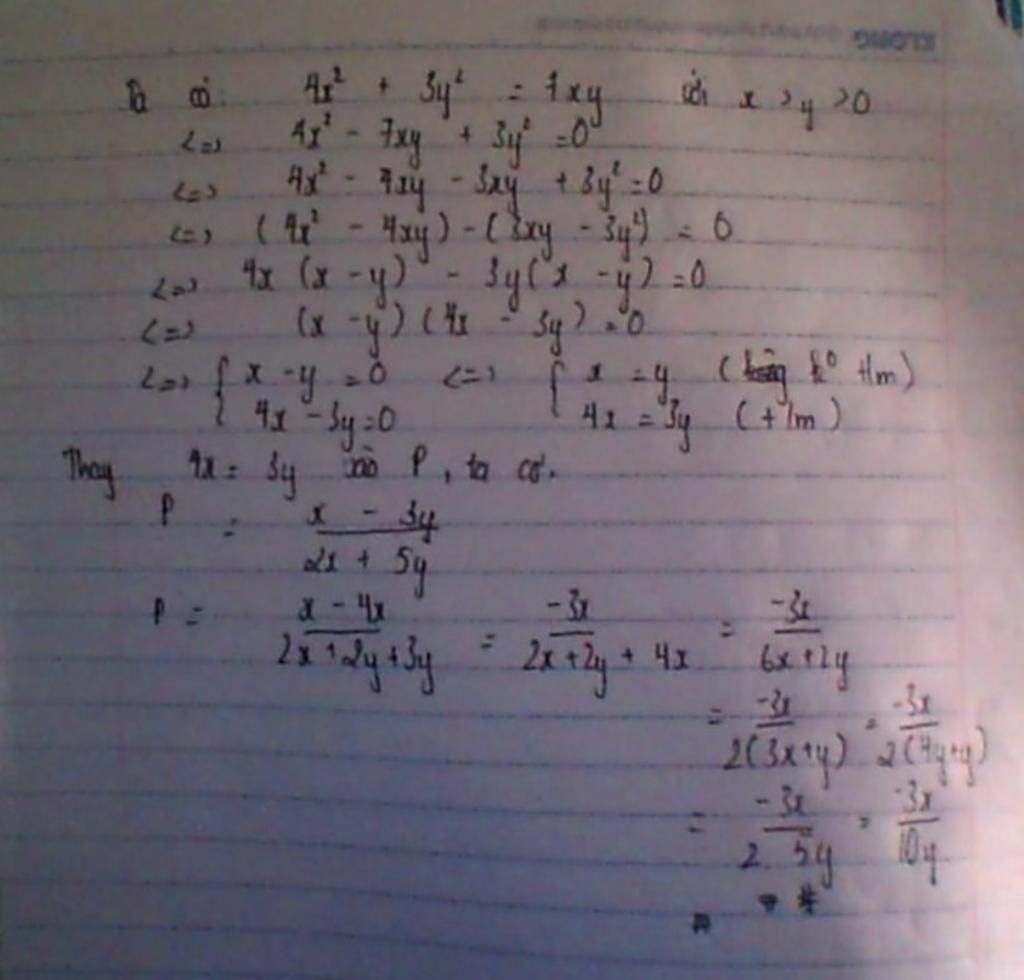 KLONG
Ta có: 4x² + 3y² = 7xy với x > y > 0
<=> 4x² - 7xy + 3y² = 0
<=> 4x² - 4xy - 3xy + 3y² = 0
<=> (4x² - 4xy) - (3xy - 3y²) = 0
<=> 4x (x - y) - 3y (x - y) = 0
<=> (x - y) (4x - 3y) = 0
<=> { x - y = 0 <=> { x = y (k⁰ t/m)
4x - 3y = 0 4x = 3y (t/m)
Thay 4x = 3y vào P, ta có.
P = \frac{x - 3y}{2x + 5y}
P = \frac{x - 4x}{2x + 2y + 3y} = \frac{-3x}{2x + 2y + 4x} = \frac{-3x}{6x + 2y}
= \frac{-3x}{2(3x + y)} = \frac{-3x}{2(4y + y)}
= \frac{-3x}{2 . 5y} = \frac{-3x}{10y}